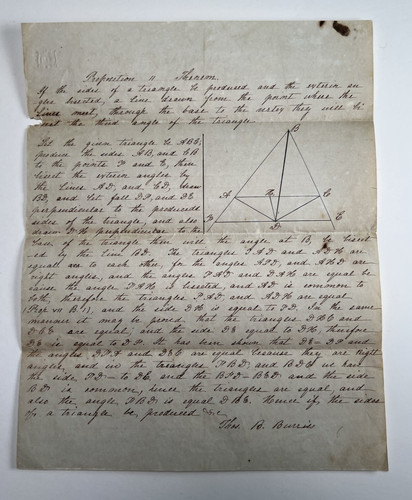 Proposition 11 Theorem
If the sides of a triangle be produced and the exterior an
gles bisected, a line drawn from the point where the
lines meet, through the base to the vertex they will bi
sect the third angle of the triangle.
Let the given triangle be ABC,
produce the sides AB, and CB
to the points F and E, then
bisect the exterior angles by
the lines AD, and CD, draw
BD, and let fall DF, and DE
perpendicular to the produced
sides of the triangle, and also
draw DH perpendicular to the
base of the triangle then will the angle at B, be bisect
ed by the line BD. The triangles FAD and ADH are
equal one to each other, for the angles AFD, and AHD are
right angles, and the angles FAD and DAH are equal be
cause the angle FAH is bisected, and AD is common to
both, therefore the triangles FAD, and ADH are equal
(Prop VII B. 1), and the side DH is equal to FD. In the same
manner it may be proved that the triangles DHC and
DCE are equal; and the side DE equal to DH, therefore
DE is equal to DF. It has been shown that DE = DF and
the angles DFA and DEC are equal because they are right
angles, and in the triangles FBD, and BDE we have
the side, FD = to DE, and the BFD = BED and the side
BD is common, hence the triangles are equal and
also the angle FBD is equal DBE. Hence if the sides
of a triangle be produced &c
Thos. B.
B
A
H
C
F
D
E